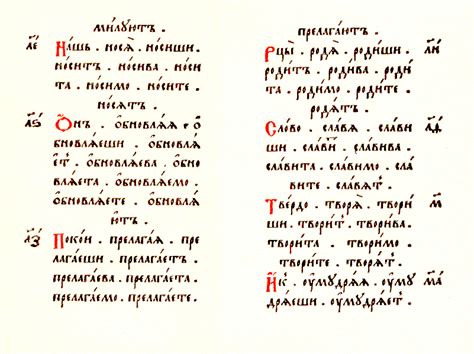 ми́лꙋютъ .
л҃е На́шъ . нося̀ . но́сиши .
но́ситъ . но́сива . но́си
та . но́симо . но́сите .
но́сѧтъ .
л҃ѕ Ѻ́нъ . ѻ҆бновлѧ́ѧ . ѻ҆
бновлѧ́еши . ѻ҆бновлѧ
́ет̾ . ѻ҆бновлѧ́ева . ѻ҆бно
влѧ́ета . ѻ҆бновлѧ́емо .
ѻ҆бновлѧ́ете . ѻ҆бновлѧ́
ютъ .
л҃з Поко́и . прелага́ѧ . пре
лага́еши . прелага́етъ .
прелага́ева . прелага́ета .
прелага́емо . прелага́ете .
прелага́ютъ .
Рцы̀ . родѧ̀ . роди́ши . л҃и
роди́тъ . роди́ва . роди́
та . роди́мо . роди́те .
родѧ́тъ .
Сло́во . сла́вѧ . сла́ви
ши . сла́вит̾ . сла́вива .
сла́вита . сла́вимо . сла́
вите . сла́вѧт̾ .
Тве́рдо . творѧ̀ . твори́ м҃
ши . твори́т̾ . твори́ва .
твори́та . твори́мо .
твори́те . творѧ́т̾ .
И҆́к̾ . ѹ҆мꙋ́дрѧѧ . ѹ҆мꙋ м҃а
дрѧ́еши . ѹ҆мꙋдрѧ́ет̾ .